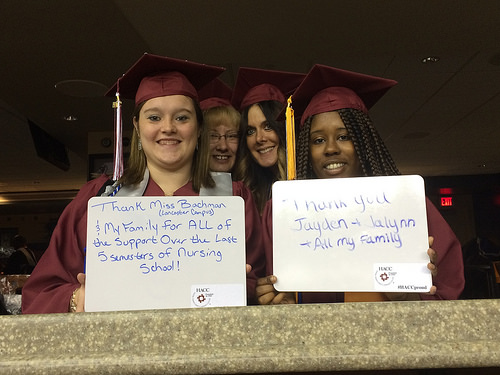 Thank Miss Bachman
(Lancaster Campus)
& My Family for ALL of
the Support Over the Last
5 semesters of Nursing
School!
HACC
Thank you
Jayden + Jalynn
+ All my Family
HACC
#HACCproud
EXIT